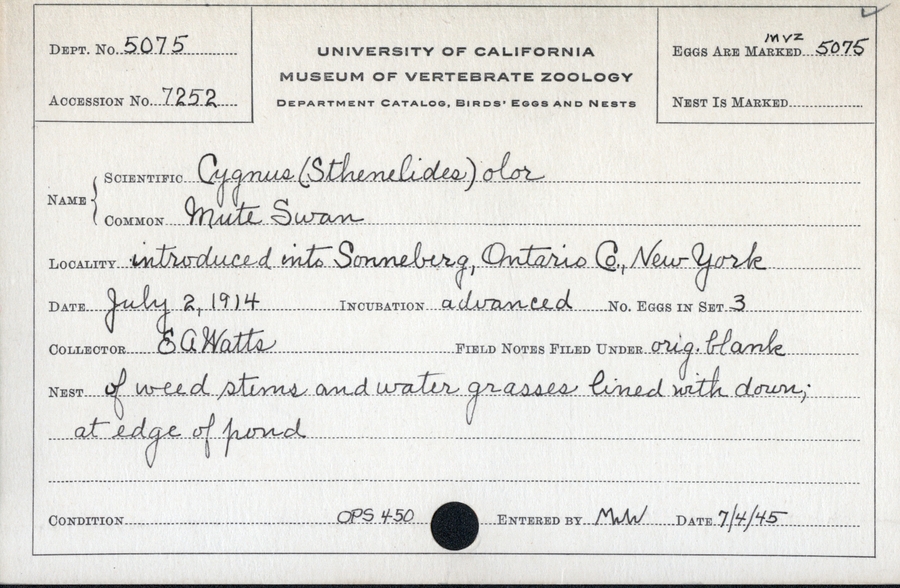 DEPT. NO. 5075
ACCESSION NO. 7252
UNIVERSITY OF CALIFORNIA
MUSEUM OF VERTEBRATE ZOOLOGY
DEPARTMENT CATALOG, BIRDS' EGGS AND NESTS
EGGS ARE MARKED mvz 5075
NEST IS MARKED
NAME
SCIENTIFIC Cygnus (Sthenelides) olor
COMMON Mute Swan
LOCALITY introduced into Sonneberg, Ontario Co., New York
DATE July 2, 1914 INCUBATION advanced NO. EGGS IN SET 3
COLLECTOR E A Watts FIELD NOTES FILED UNDER orig. blank
NEST of weed stems and water grasses lined with down;
at edge of pond
CONDITION OPS 450 ENTERED BY MW DATE 7/4/45